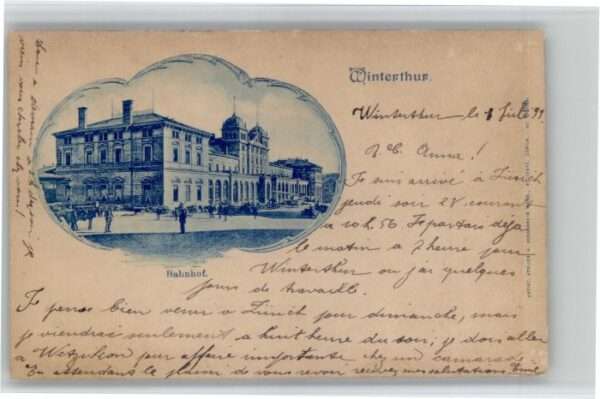 Winterthur.
Winterthur le 1 Juil 99
J. C. Anna!
Je suis arrivé à Zürich
jeudi soir 28 courant
a 10 h. 56 Je partais déja
le matin a 7 heure pour
Winterthur ou j'ai quelques
jours de travaille.
Bahnhof.
Je pense bien venir a Zürich pour dimanche, mais
je viendrai seulement a huit heure du soir; je dois aller
a Wetzikon pour affaire importante chez un camarade
En attendant le plaisir de vous revoir recevez mes salutations Emil